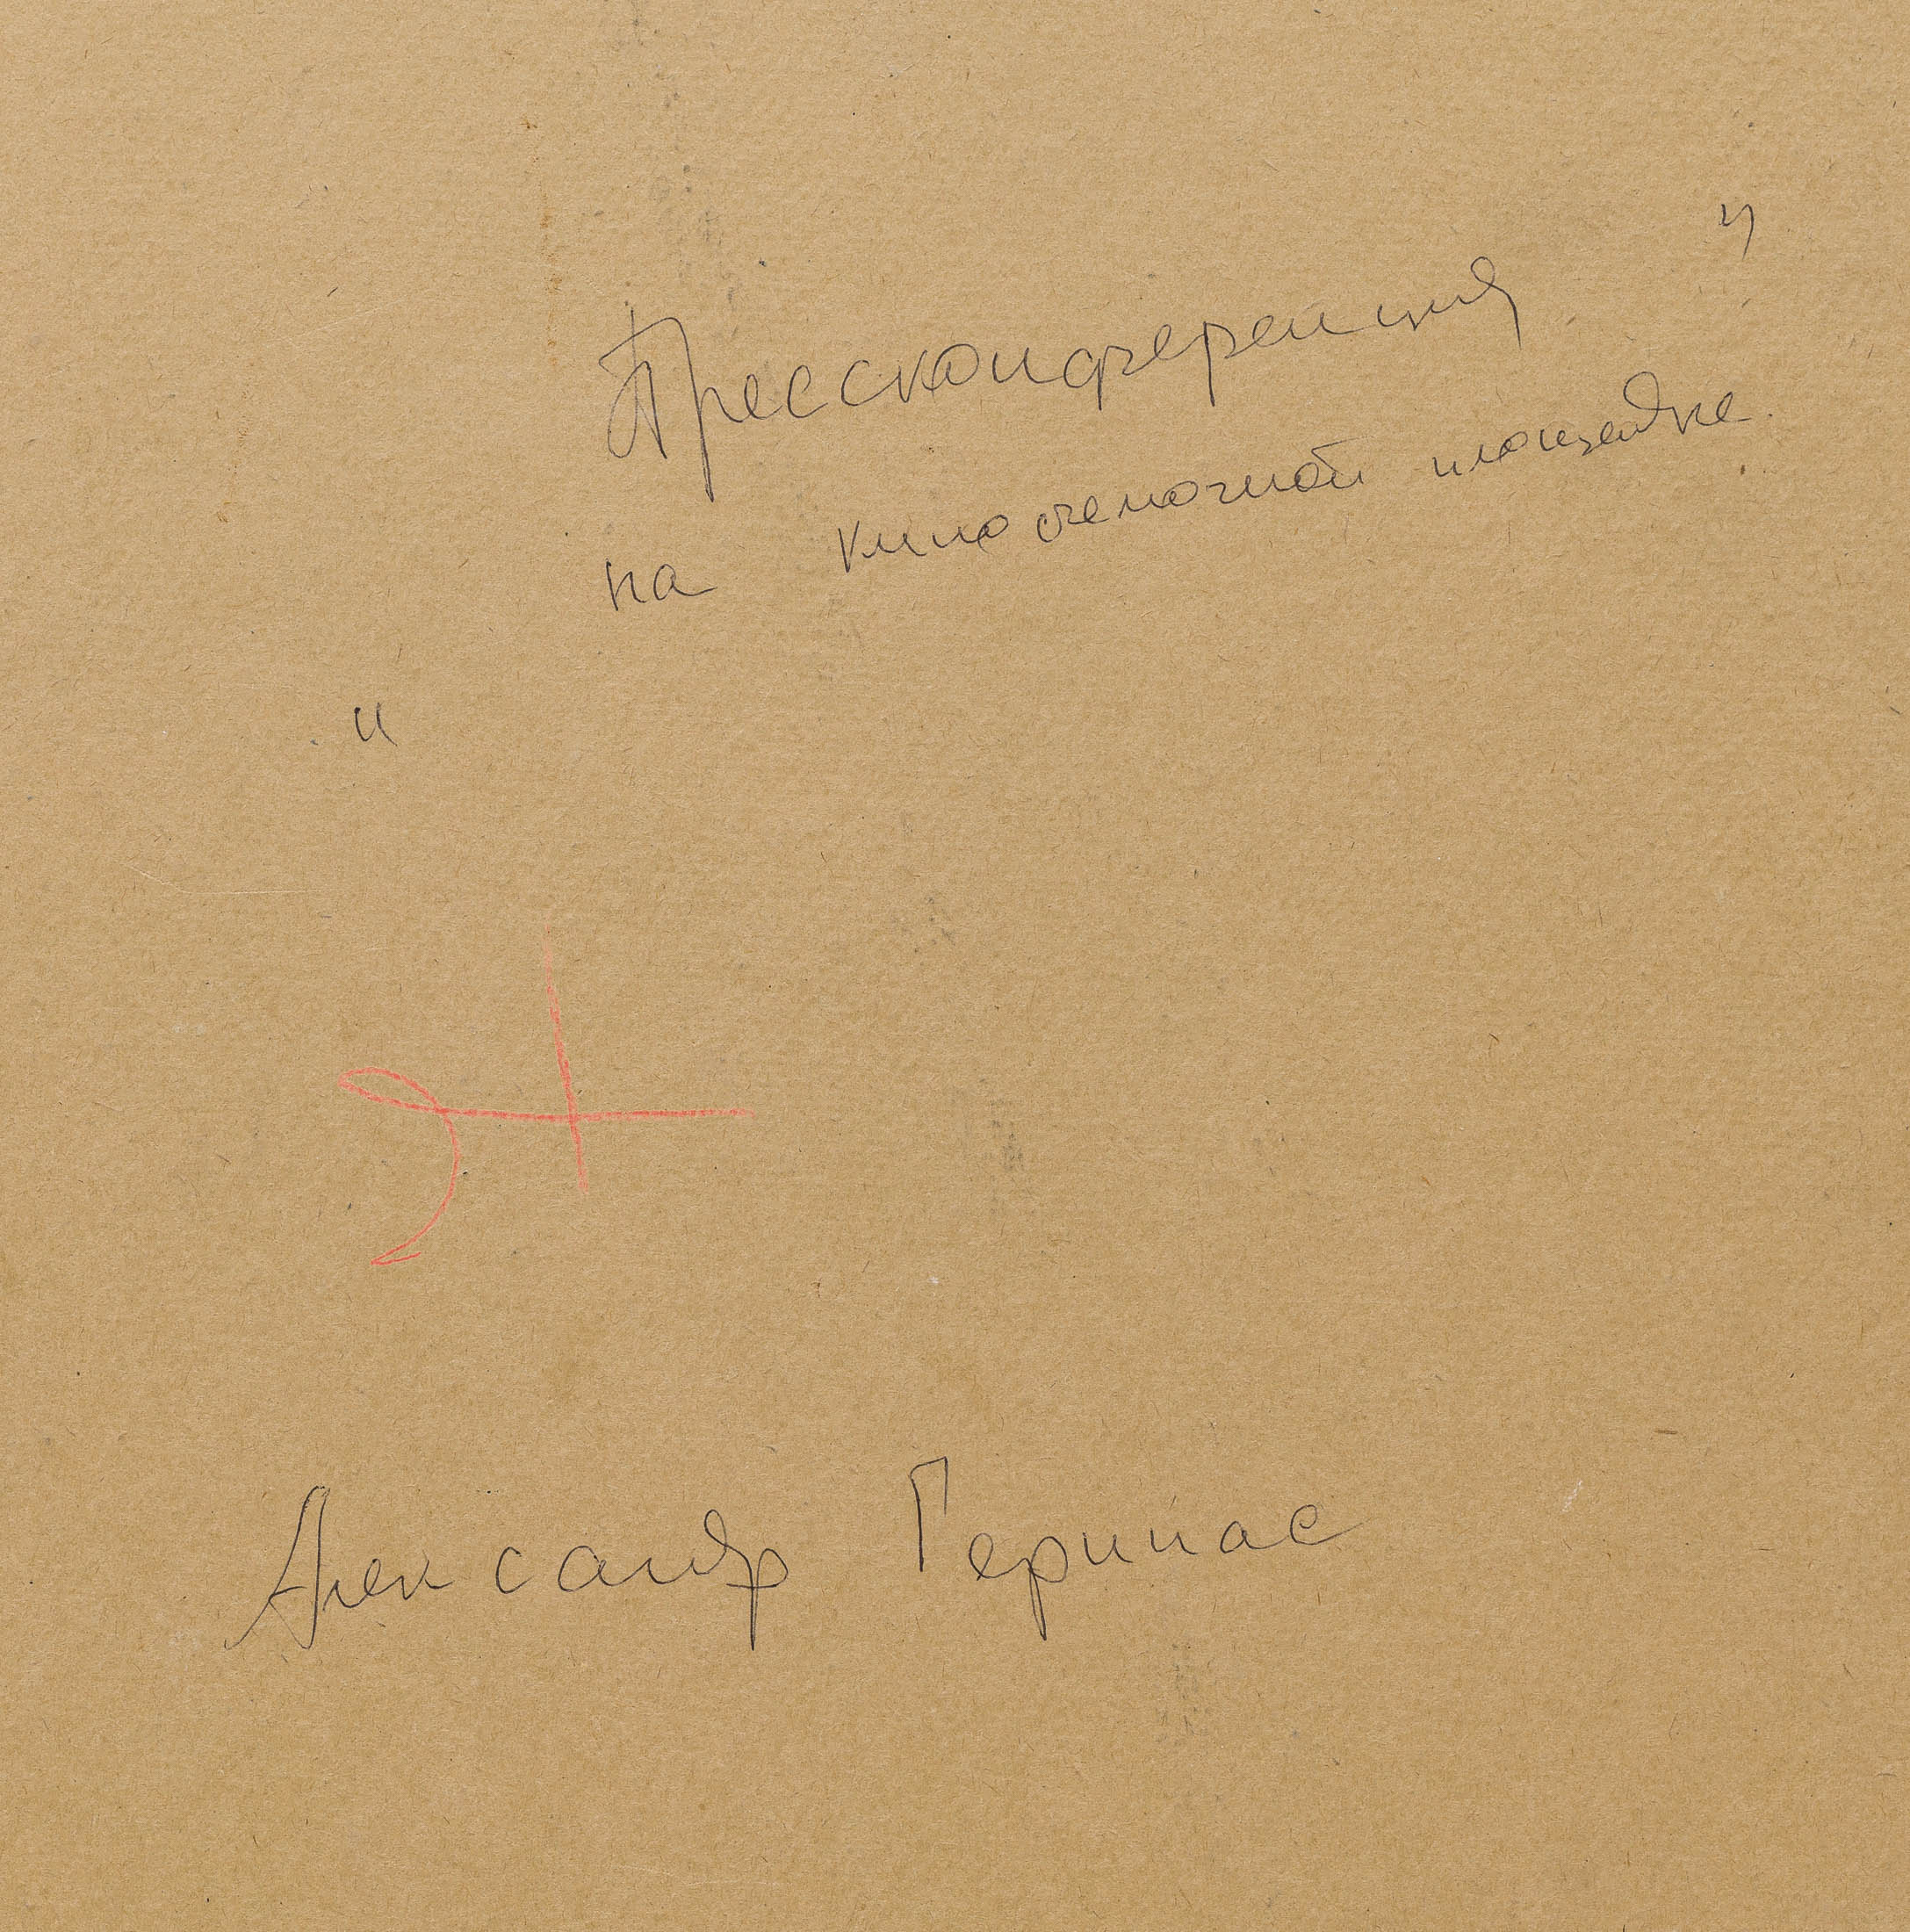 Прессконференция "
на кино съемочной площадке.
"
Александр Геринас